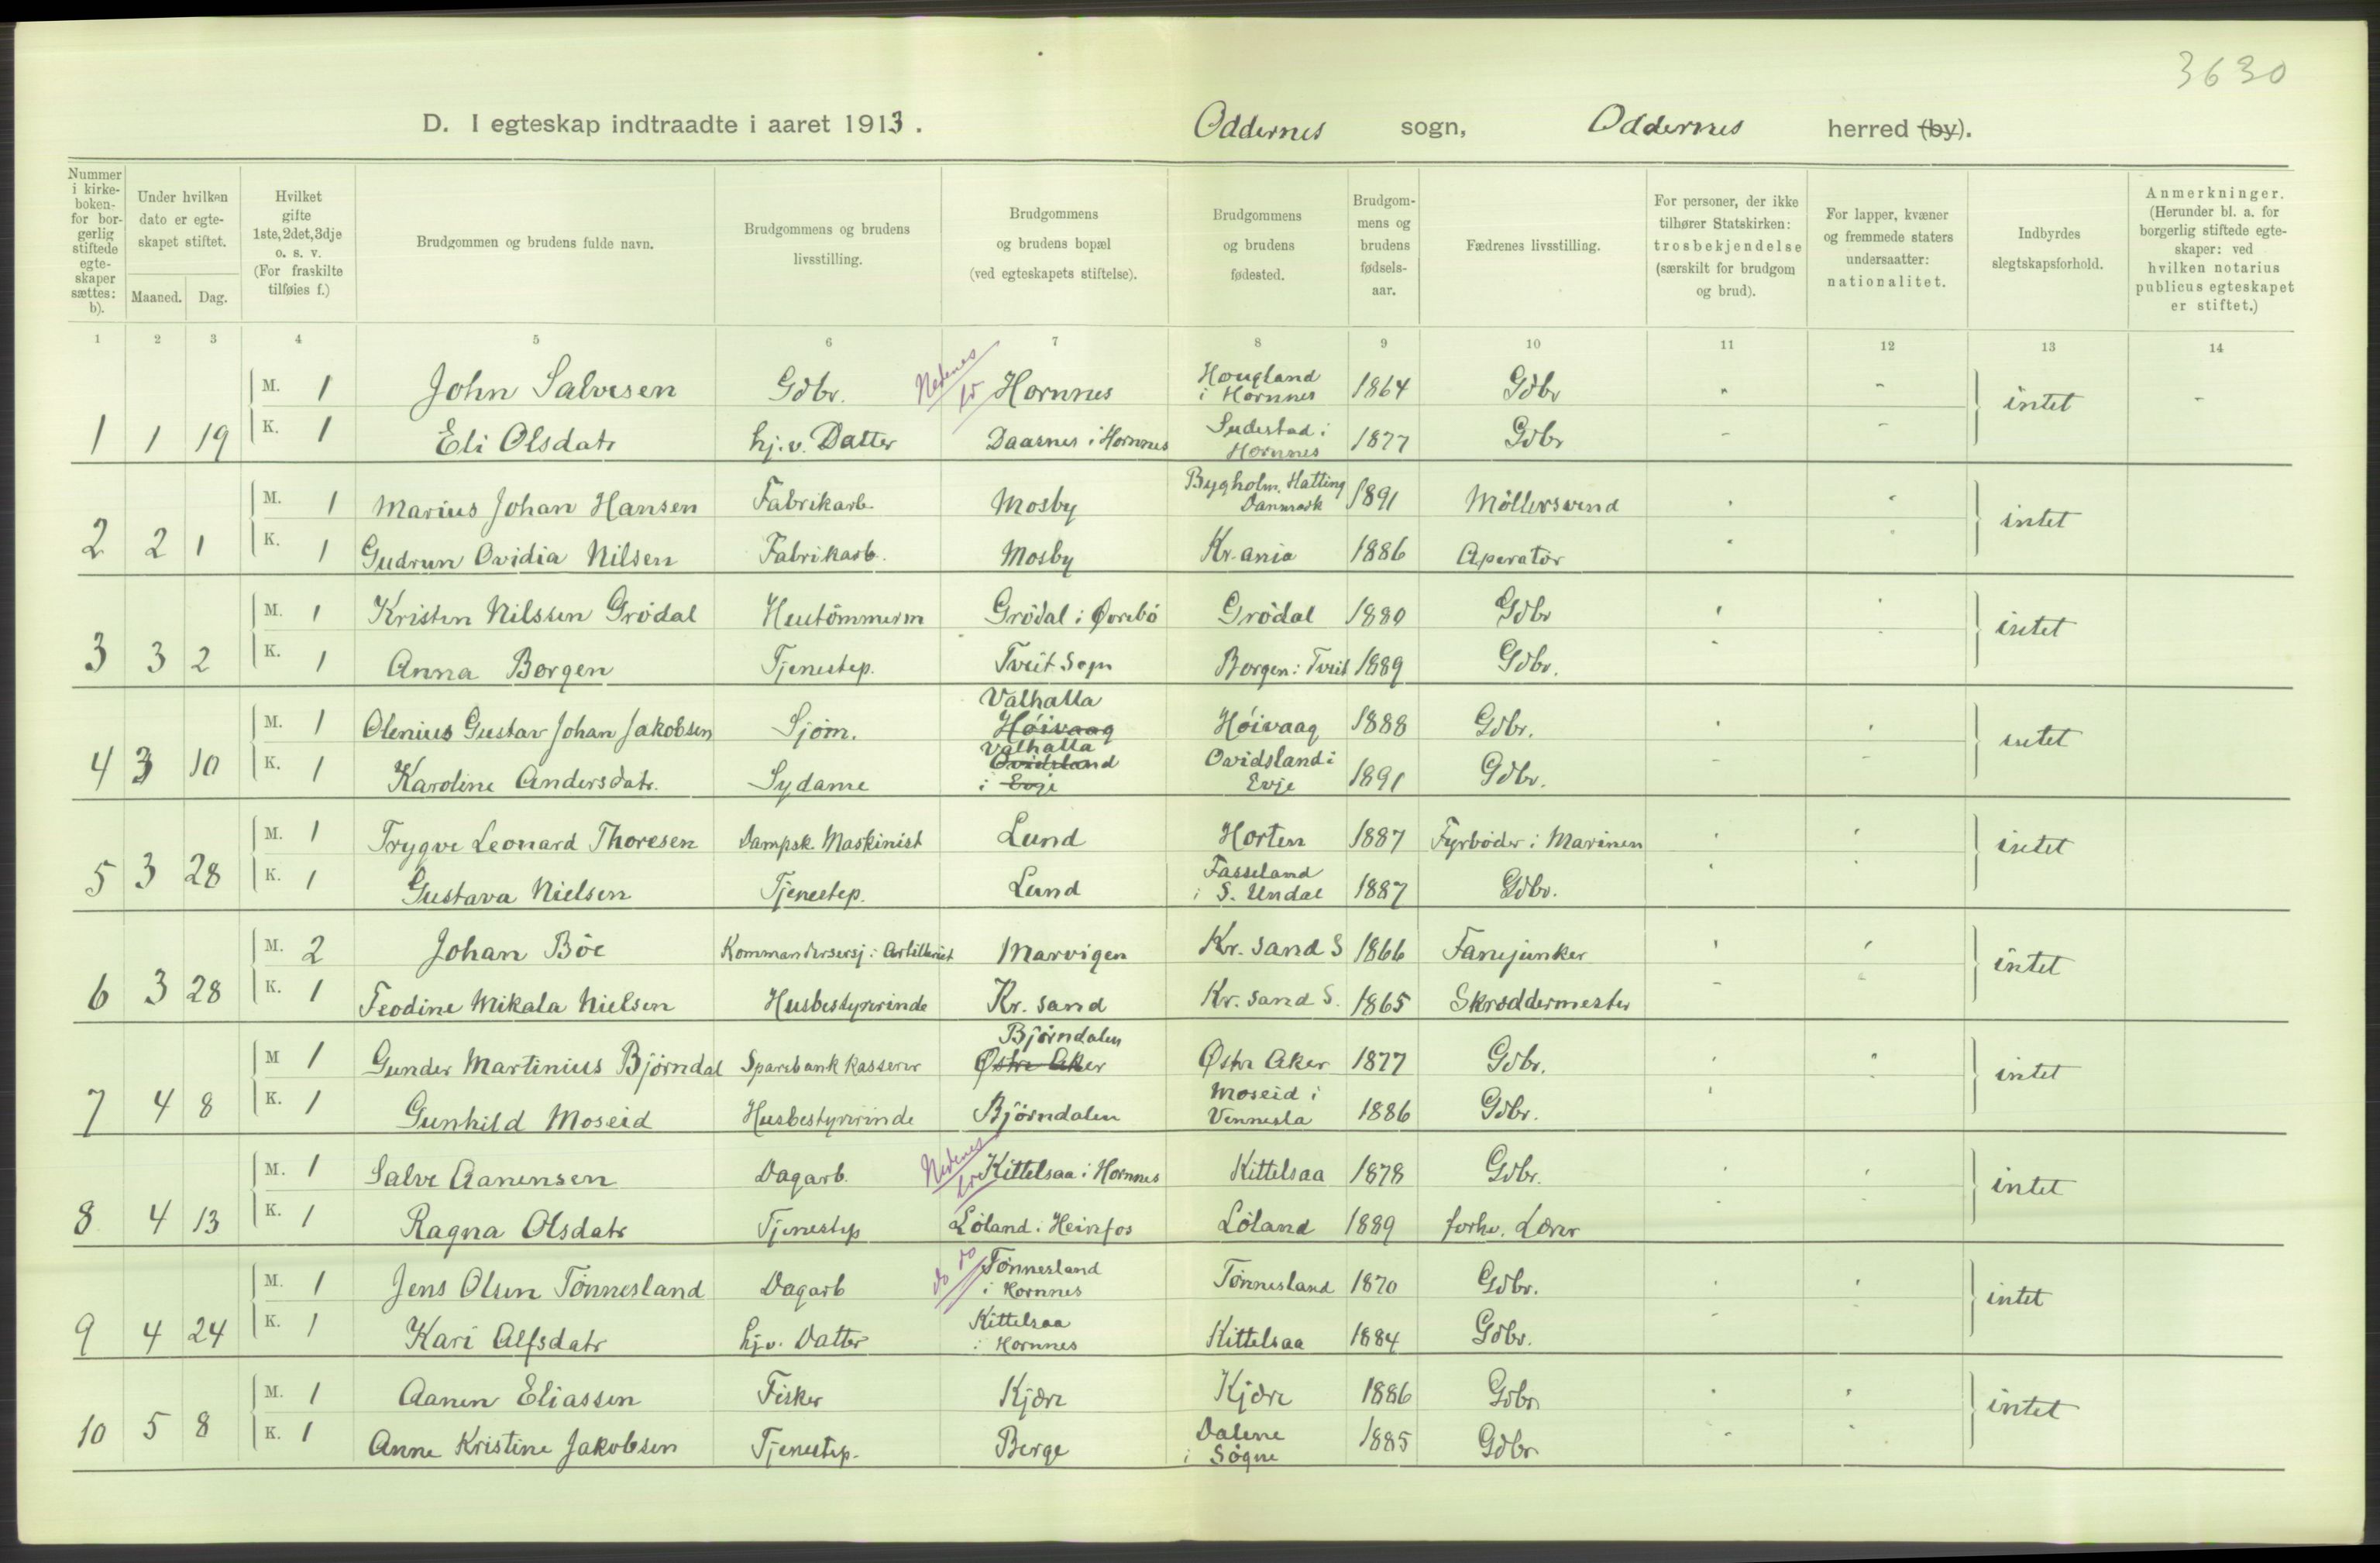 3630
D. I egteskap indtraadte i aaret 1913. Oddernes sogn, Oddernes herred (by).
Nummer i kirkeboken for borgerlig stiftede egteskaper sættes: b).
Under hvilken dato er egteskapet stiftet.
Maaned. Dag.
Hvilket gifte 1ste, 2det, 3dje o. s. v. (For fraskilte tilføies f.)
Brudgommen og brudens fulde navn.
Brudgommens og brudens livsstilling.
Brudgommens og brudens bopæl (ved egteskapets stiftelse).
Brudgommens og brudens fødested.
Brudgommens og brudens fødselsaar.
Fædrenes livsstilling.
For personer, der ikke tilhører Statskirken: trosbekjendelse (særskilt for brudgom og brud).
For lapper, kvæner og fremmede staters undersaatter: nationalitet.
Indbyrdes slegtskapsforhold.
Anmerkninger. (Herunder bl. a. for borgerlig stiftede egteskaper: ved hvilken notarius publicus egteskapet er stiftet.)
1 2 3 4 5 6 7 8 9 10 11 12 13 14
M. 1 John Salvesen Gdbr. Nedenes Hornnes Hougland i Hornnes 1864 Gdbr " " intet -
1 1 19 K. 1 Eli Olsdatr hj. v. Datter Daasnes i Hornnes Sudestad i Hornnes 1877 Gdbr
M. 1 Marius Johan Hansen Fabrikarb. Mosby Bygholm, Hatting Danmark 1891 Møllersvend intet
2 2 1 K. 1 Gudrun Ovidia Nilsen Fabrikarb. Mosby Kr.ania 1886 Aperatør
M. 1 Kristen Nilssen Grødal Hustømmerm Grødal i Øvrebø Grødal 1880 Gdbr intet
3 3 2 K. 1 Anna Borgen Tjenestep. Tveit Sogn Borgen i Tveit 1889 Gdbr.
M. 1 Olenius Gustav Johan Jakobsen Sjøm. Valhalla Høivaag Høivaag 1888 Gdbr. intet
4 3 10 K. 1 Karoline Andersdatr. Sydame Valhalla Ovidsland i Evje Ovidsland i Evje 1891 Gdbr.
M. 1 Trygve Leonard Thoresen Dampsk. Maskinist Lund Horten 1887 Fyrbøder i Marinen intet
5 3 28 K. 1 Gustava Nielsen Tjenestep. Lund Fasseland i S. Undal 1887 Gdbr.
M. 2 Johan Böe Kommandersersj. i Artilleriet Marvigen Kr.sand S 1866 Fanejunker intet
6 3 28 K. 1 Feodine Mikala Nielsen Husbestyrerinde Kr.sand Kr.sand S. 1865 Skræddermester
M 1 Gunder Martinius Bjørndal Sparebankkasserer Bjørndalen Østre Aker Østre Aker 1877 Gdbr. intet
7 4 8 K. 1 Gunhild Moseid Husbestyrerinde Bjørndalen Moseid i Vennesla 1886 Gdbr.
M. 1 Salve Aanensen Dagarb. Nedenes Kittelsaa i Hornnes Kittelsaa 1878 Gdbr. intet
8 4 13 K. 1 Ragna Olsdatr Tjenestep Løland i Heirefos Løland 1889 forhv. Lærer
M. 1 Jens Olsen Tønnesland Dagarb do do Tønnesland i Hornnes Tønnesland 1870 Gdbr. intet
9 4 24 K. 1 Kari Alfsdatr hj.v. Datter Kittelsaa i Hornnes Kittelsaa 1884 Gdbr.
M. 1 Aanen Eliassen Fisker Kjære Kjære 1886 Gdbr intet
10 5 8 K. 1 Anne Kristine Jakobsen Tjenestep. Berge Dalene i Søgne 1885 Gdbr